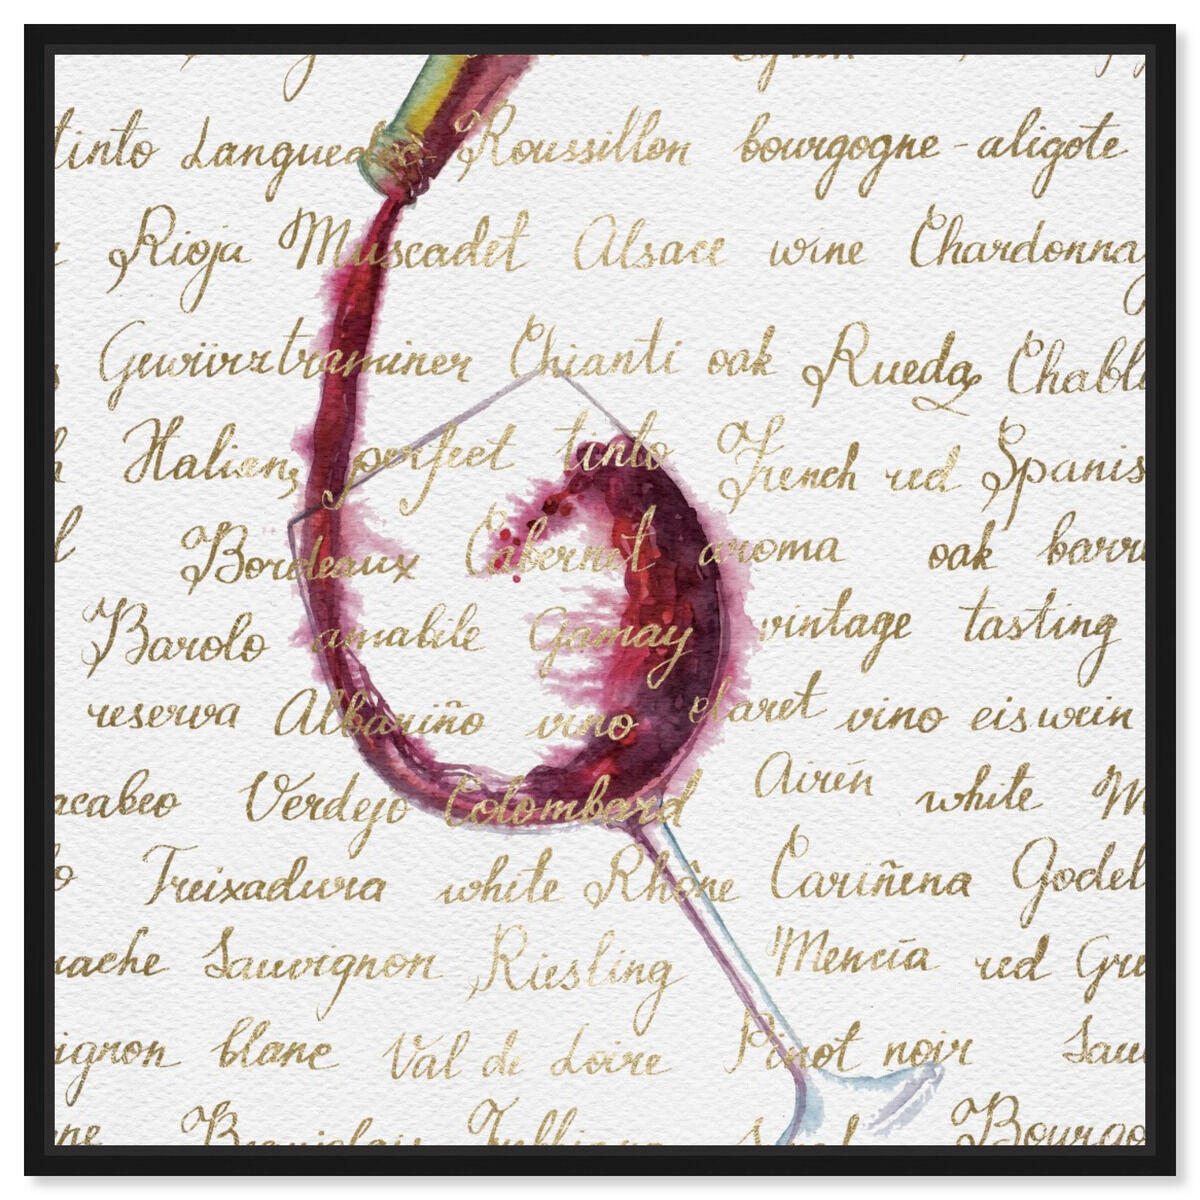 tinto Languedoc - Roussillon bourgogne - aligote
Rioja Muscadet Alsace wine Chardonnay
Gewürztraminer Chianti oak Rueda Chabli
Italien perfect tinto French red Spanis
Bordeaux Cabernet aroma oak barr
Barolo amabile Gamay vintage tasting
reserva Albariño vino claret vino eiswein
acabeo Verdejo Colombard Airén white M
Treixadura white Rhône Cariñena Godel
nache Sauvignon Riesling Mencía red Gre
ignon blanc Val de Loire Pinot noir Sau
Bourgo